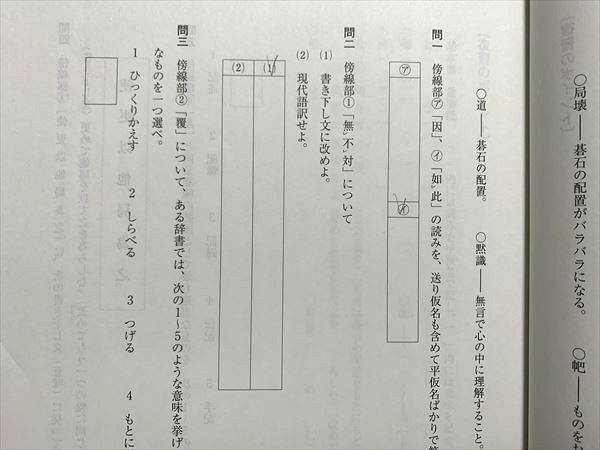 ○局壊――碁石の配置がバラバラになる。　○帊――ものをお
○道――碁石の配置。　○黙識――無言で心の中に理解すること。
問一　傍線部㋐「因」、㋑「如レ此」の読みを、送り仮名も含めて平仮名ばかりで
㋐
㋑
問二　傍線部①「無レ不レ対」について
(1)　書き下し文に改めよ。
(2)　現代語訳せよ。
(1)
(2)
問三　傍線部②「覆」について、ある辞書では、次の1～5のような意味を挙げ
なものを一つ選べ。
1　ひっくりかえす　2　しらべる　3　つげる　4　もとに